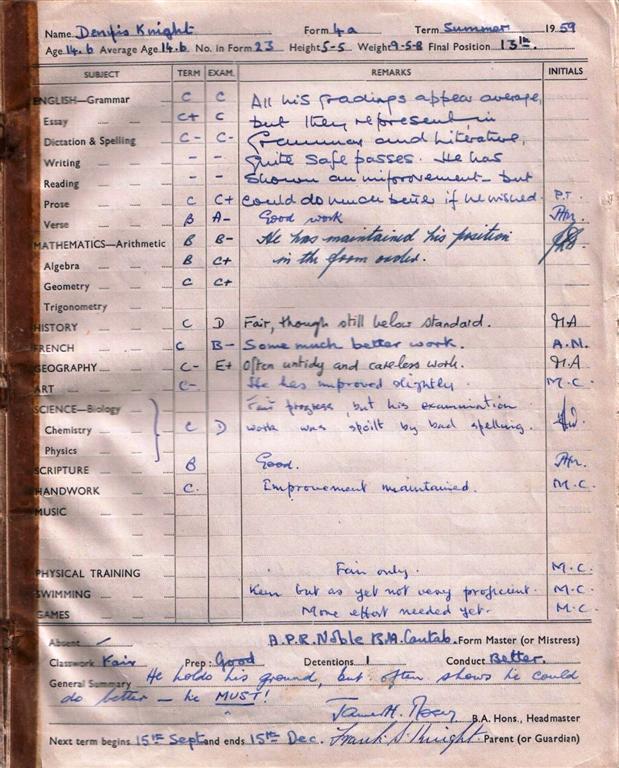 Name Dennis Knight Form 4a Term Summer 1959
Age 14.6 Average Age 14.6. No. in Form 23 Height 5-5 Weight 9-5-8 Final Position 13th.
SUBJECT TERM EXAM. REMARKS INITIALS
ENGLISH—Grammar C C All his gradings appear average,
Essay C+ C but they represent in
Dictation & Spelling C- C- Grammar and Literature,
Writing - - quite safe passes. He has
Reading - - shown an improvement but
Prose C C+ could do much better if he wished. P.T.
Verse B A- Good work
MATHEMATICS—Arithmetic B B- He has maintained his position
Algebra B C+ in the form order.
Geometry C C+
Trigonometry
HISTORY C D Fair, though still below standard. M.A
FRENCH C B- Some much better work. A.N.
GEOGRAPHY C- E+ Often untidy and careless work. M.A
ART C- He has improved slightly. M.C.
SCIENCE—Biology Fair progress, but his examination
Chemistry C D work was spoilt by bad spelling.
Physics
SCRIPTURE B Good.
HANDWORK C. Improvement maintained. M.C.
MUSIC
PHYSICAL TRAINING Fair only. M.C.
SWIMMING Keen but as yet not very proficient. M.C.
GAMES More effort needed yet. M.C.
Absent / A.P.R. Noble B.A. Cantab. Form Master (or Mistress)
Classwork Fair Prep: Good Detentions 1 Conduct Better.
General Summary He holds his ground, but often shows he could
do better – he MUST!
James H. B.A. Hons., Headmaster
Next term begins 15th Sept and ends 15th Dec. Frank S. Knight Parent (or Guardian)